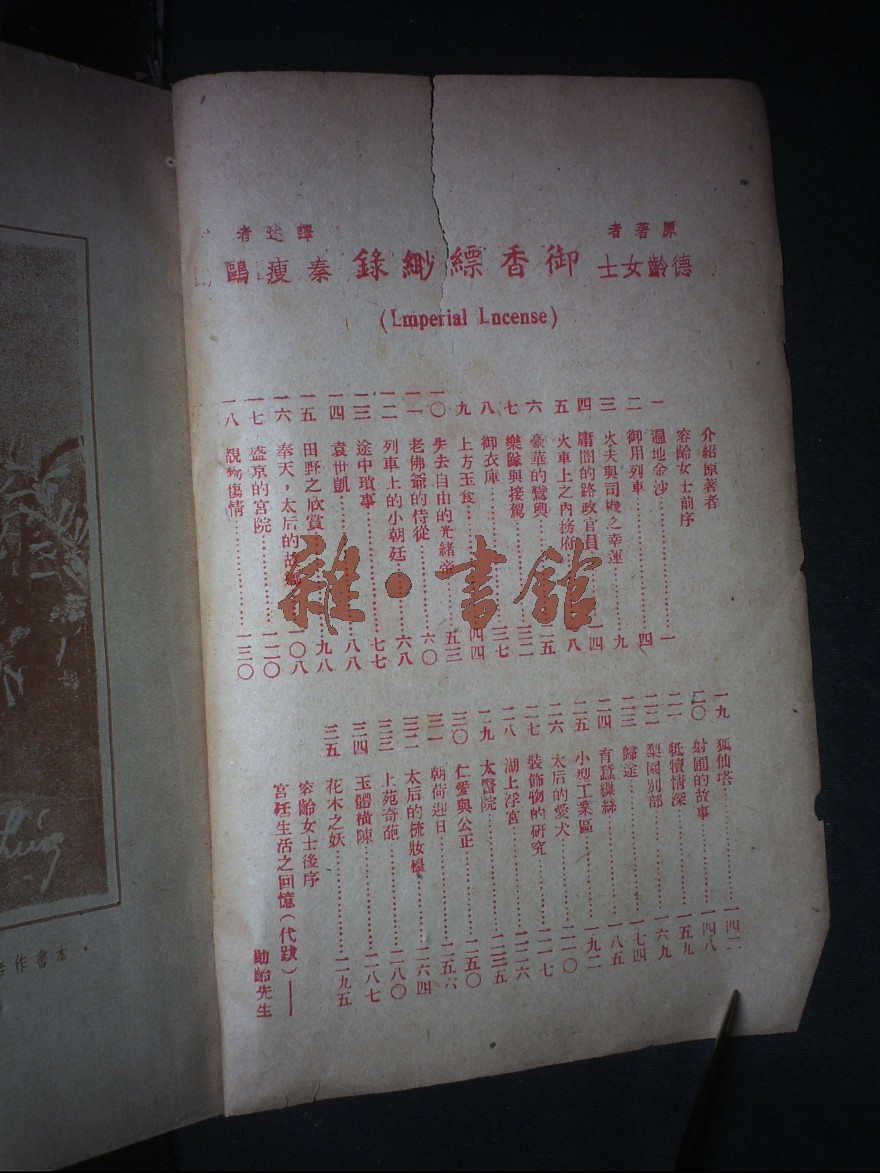 原著者
德齡女士
御香縹緲錄
譯述者
秦瘦鷗
(Lmperial Lncense)
介紹原著者
容齡女士前序
一 遍地金沙……一
二 御用列車……四
三 火夫與司機之幸運……九
四 庸闇的路政官員……一四
五 火車上之內務府……八
六 豪華的鸞輿……二五
七 樂隊與接駕……三二
八 御衣庫……三七
九 上方玉食……四四
一〇 失去自由的光緒帝……五三
一一 老佛爺的侍從……六〇
一二 列車上的小朝廷……六八
一三 途中瑣事……七七
一四 袁世凱……八八
一五 田野之欣賞……九八
一六 奉天，太后的故鄉……一〇八
一七 盛京的宮院……一二〇
一八 覩物傷情……一三〇
一九 狐仙塔……一四二
二〇 射圃的故事……一四八
二一 牴犢情深……一五九
二二 梨園別部……一六九
二三 歸途……一七四
二四 育蠶繅絲……一八五
二五 小型工業區……一九二
二六 太后的愛犬……二一〇
二七 裝飾物的研究……二一七
二八 湖上浮宮……二二六
一九 太醫院……二三五
三〇 仁愛與公正……二五〇
三一 朝荷迎日……二五六
三二 太后的梳妝檯……二六四
三三 上苑奇葩……二八〇
三四 玉體橫陳……二八七
三五 花木之妖……二九五
容齡女士後序
宮廷生活之回憶(代跋)——
勛齡先生
雜·書館
本書作者